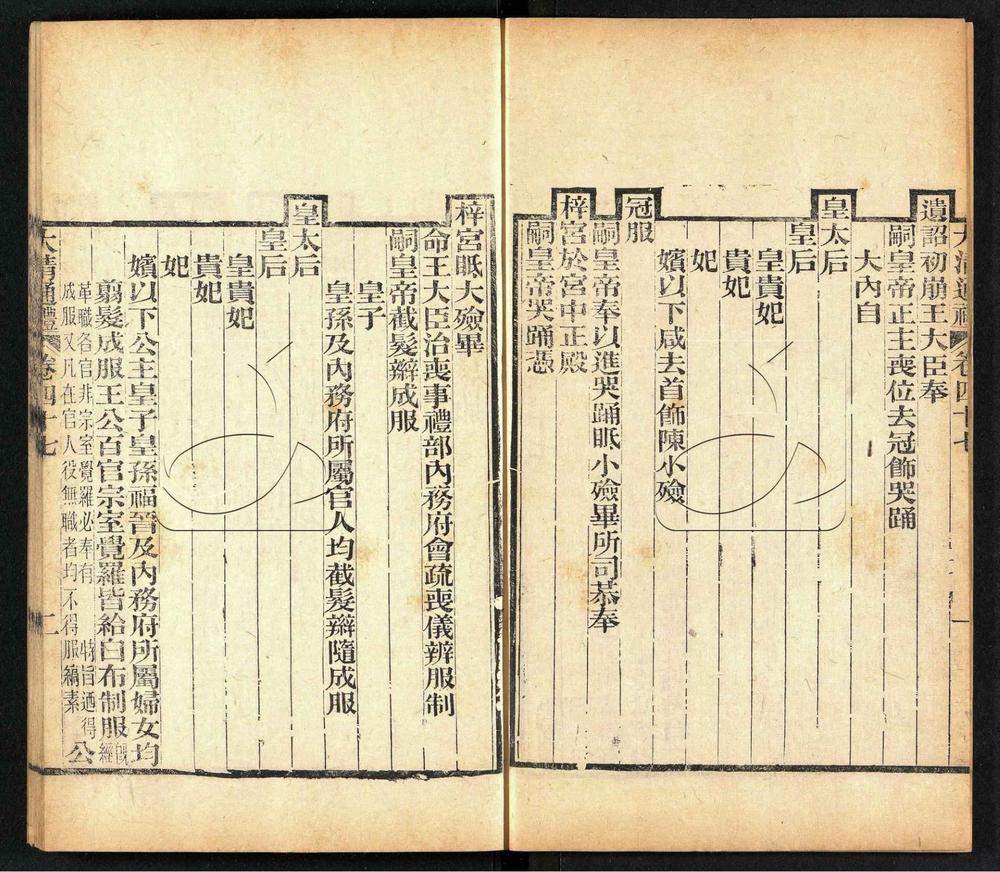 大清通禮 卷四十七 一
遺詔初崩王大臣奉
嗣皇帝正主喪位去冠飾哭踊
大內自
皇太后
皇后
皇貴妃
貴妃
妃
嬪以下咸去首飾陳小殮
冠服
嗣皇帝奉以進哭踊眂小殮畢所司恭奉
梓宮於宮中正殿
嗣皇帝哭踊憑
梓宮眂大殮畢
命王大臣治喪事禮部內務府會疏喪儀辨服制
嗣皇帝截髮辮成服
皇子
皇孫及內務府所屬官人均截髮辮隨成服
皇太后
皇后
皇貴妃
貴妃
妃
嬪以下公主皇子皇孫福晉及內務府所屬婦女均
翦髮成服王公百官宗室覺羅皆給白布制服旣經
革職各官非宗室覺羅必奉有 特旨迺得
成服又凡在官人役無職者均不得服縞素 公
大清通禮 卷四十七 二